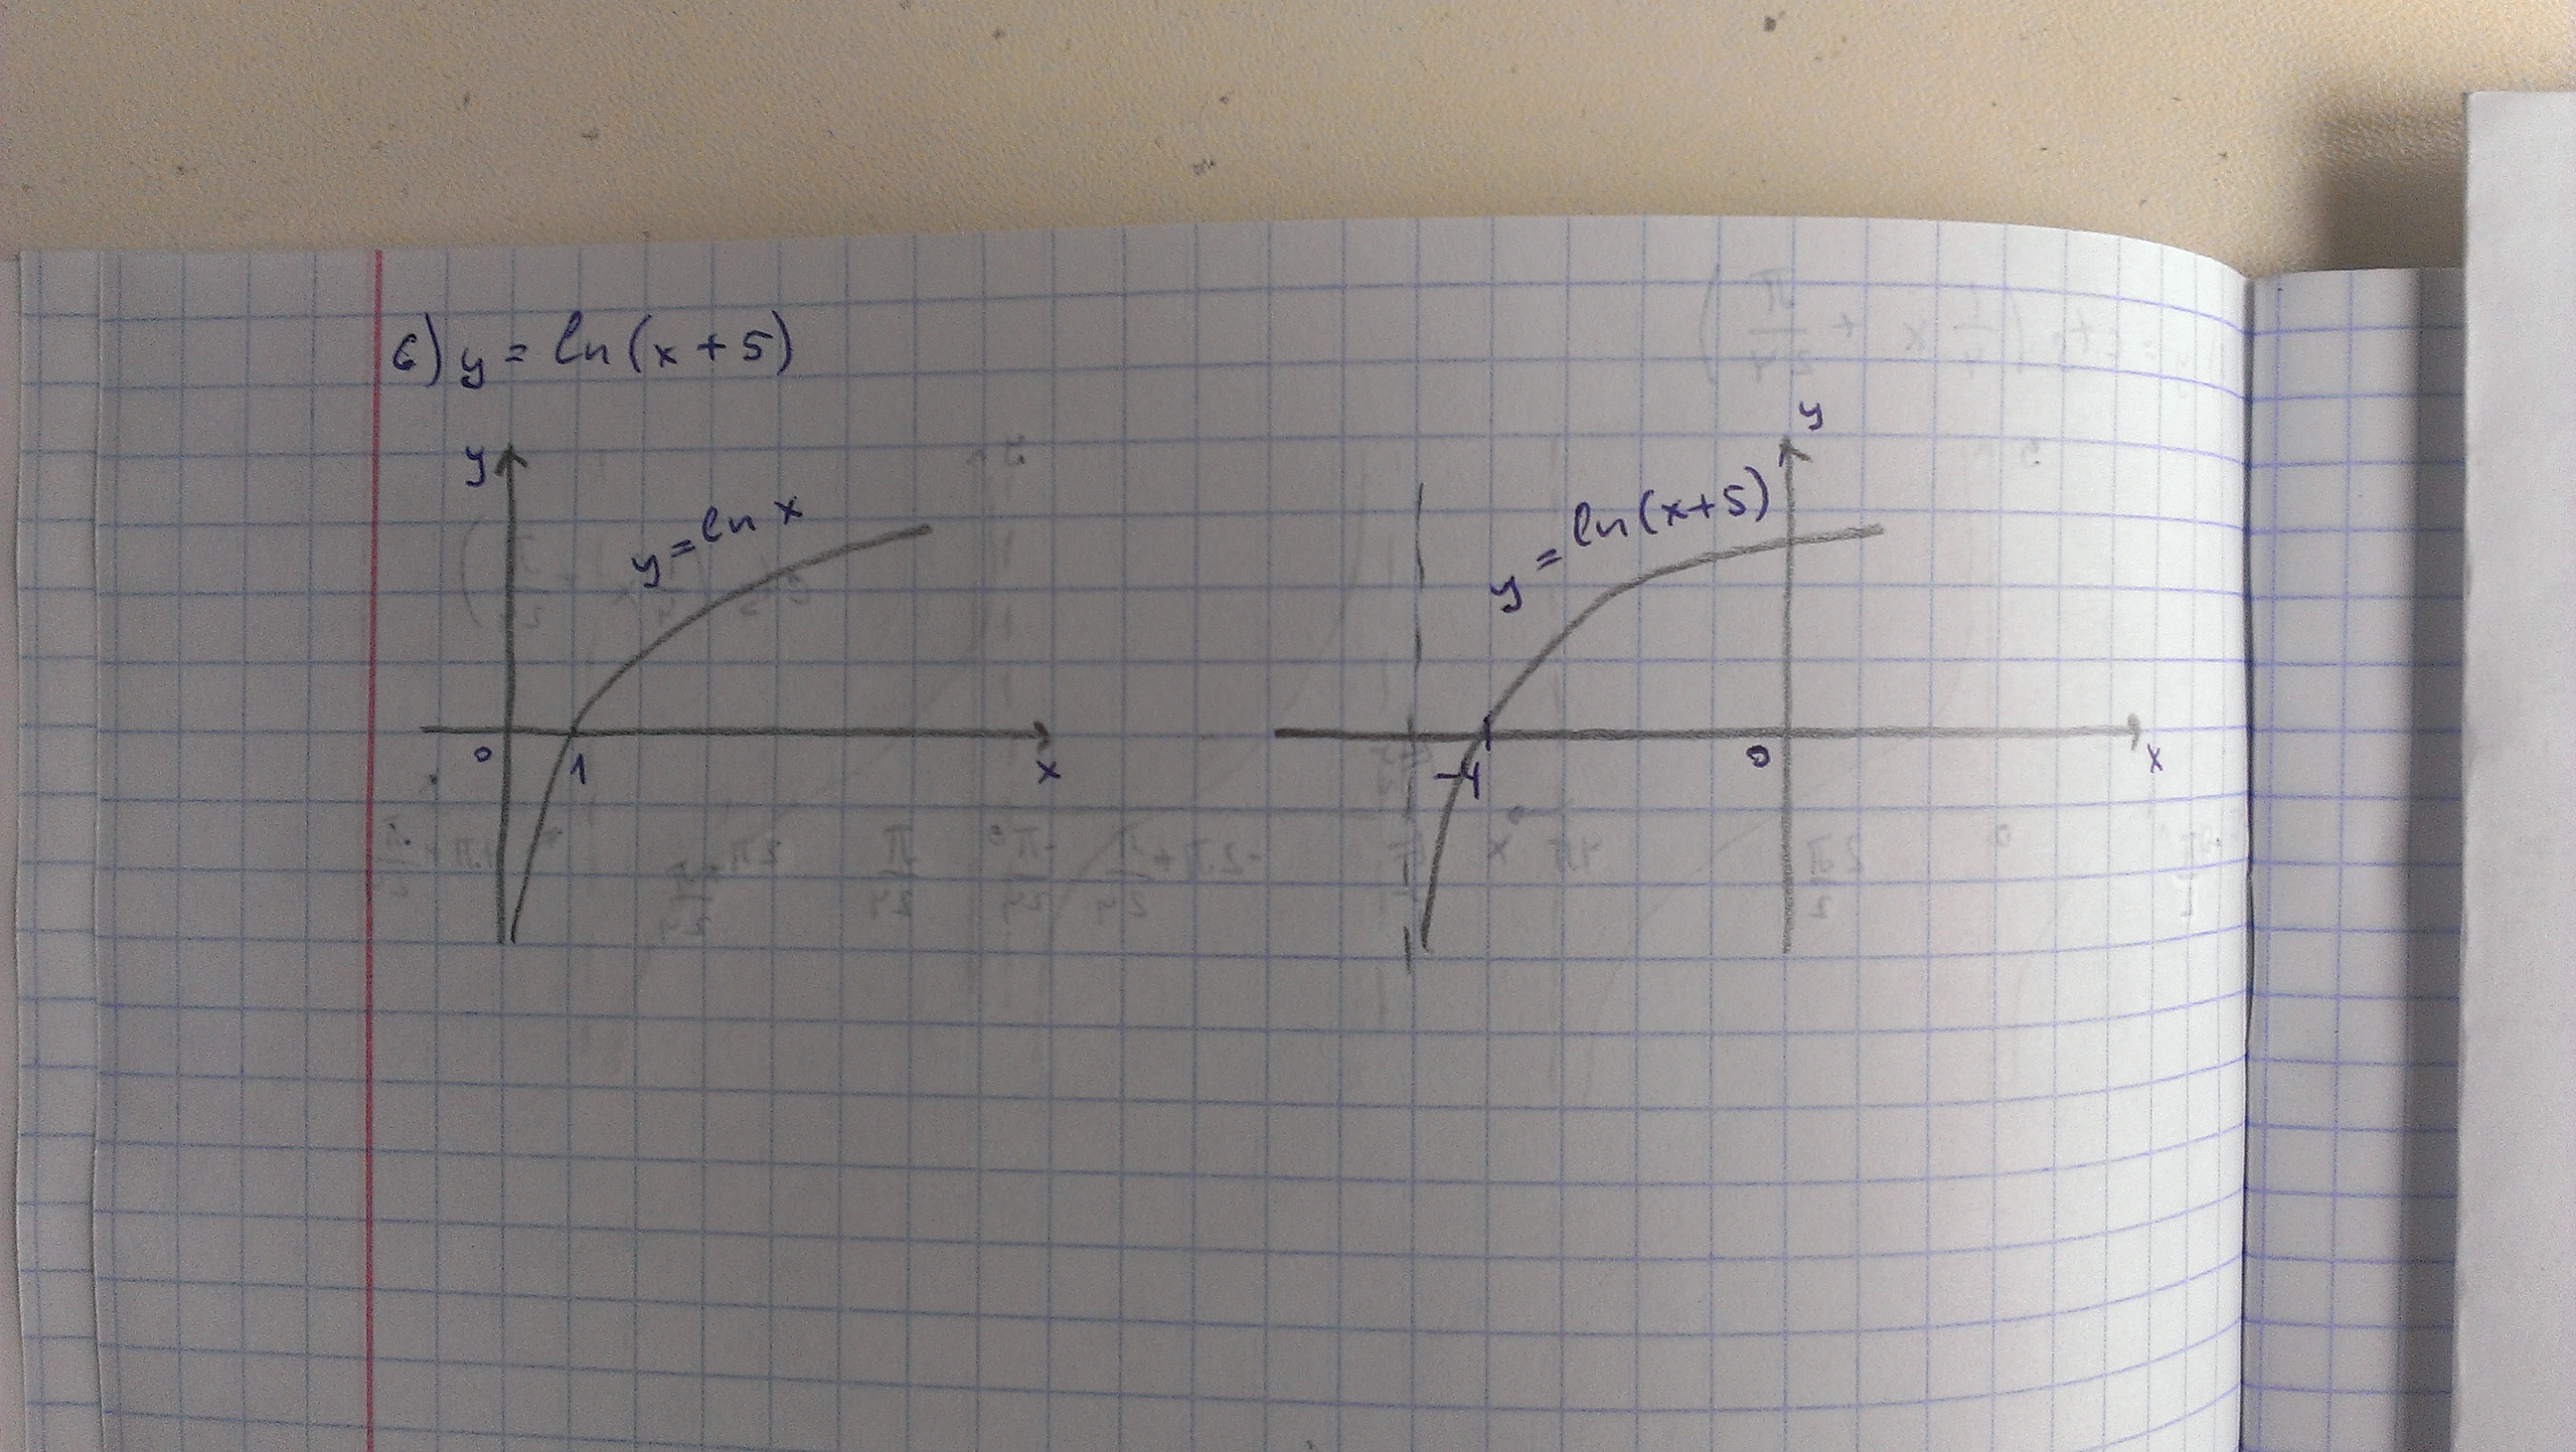 6) y = ln(x + 5)
y
y = ln x
0
1
x
y
y = ln(x+5)
-4
0
x